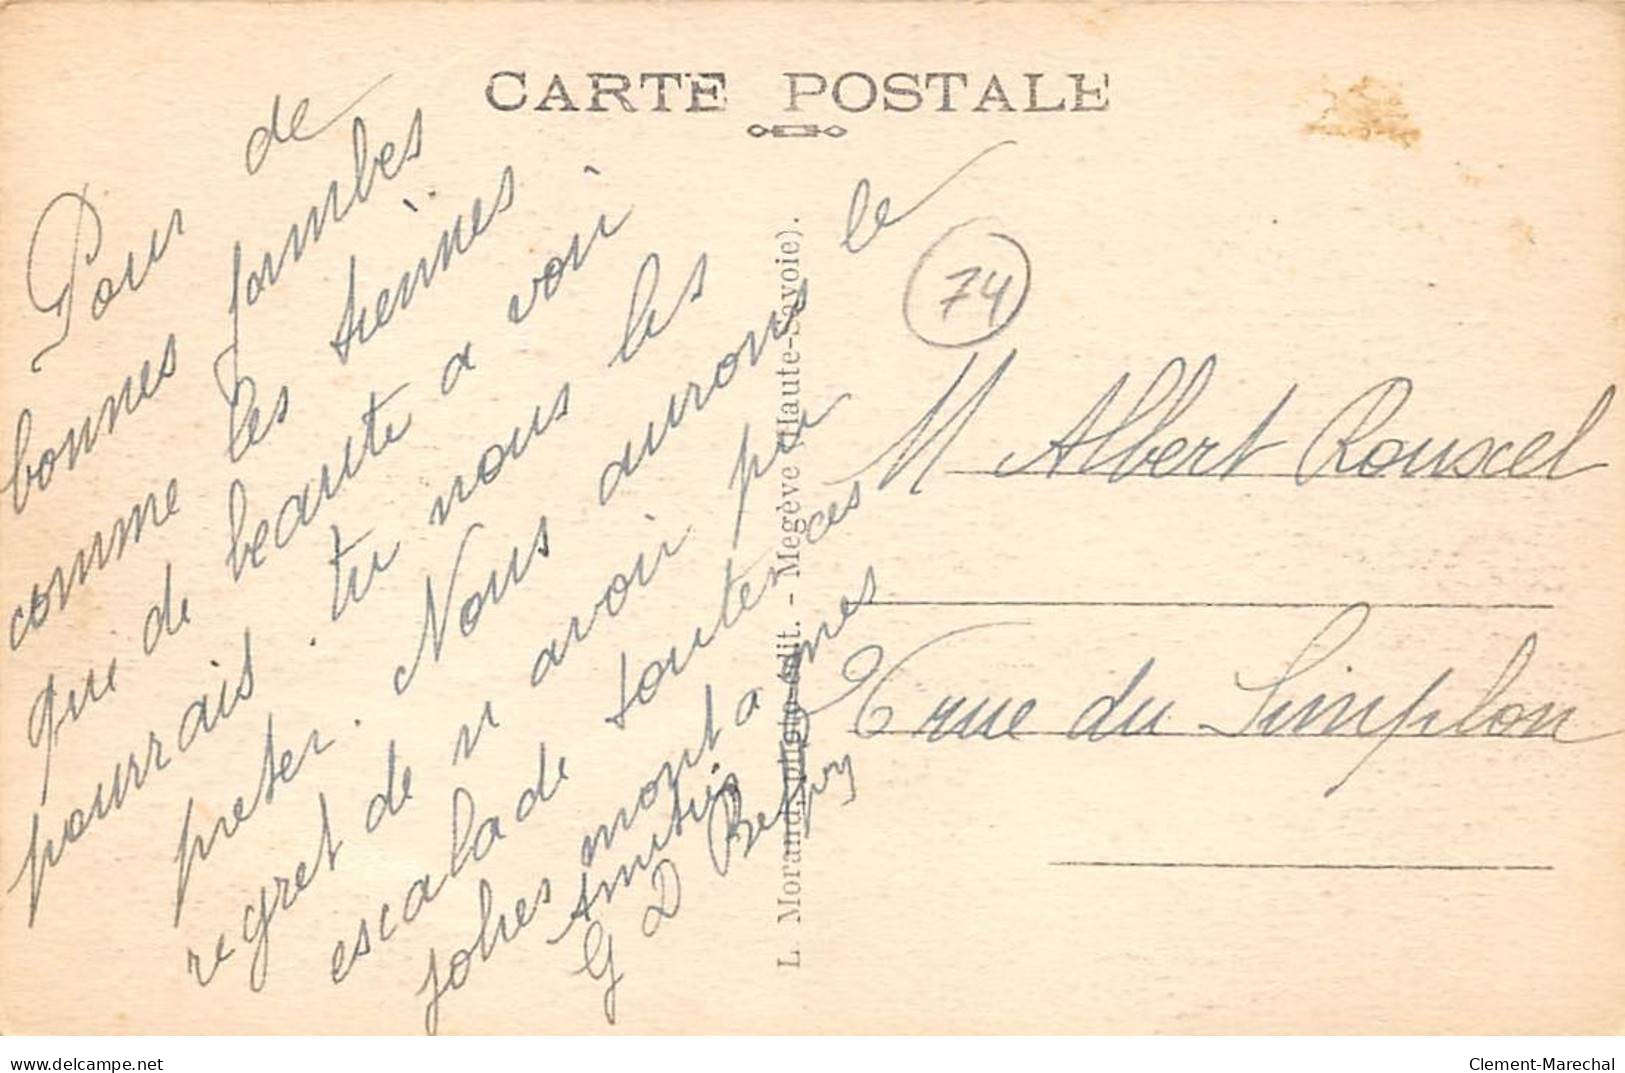 CARTE POSTALE
Pour de
bonnes jambes
comme les tiennes
que de beauté a voir
pourrais tu nous les
preter. Nous aurons le
regret de n avoir pu
escalade toutes ces
jolies montagnes
Amitiés
G D
L. Morand, photo-édit. - Megève (Haute-Savoie).
74
M Albert Rouxel
6 rue du Simplon
delcampe.net
Clement-Marechal